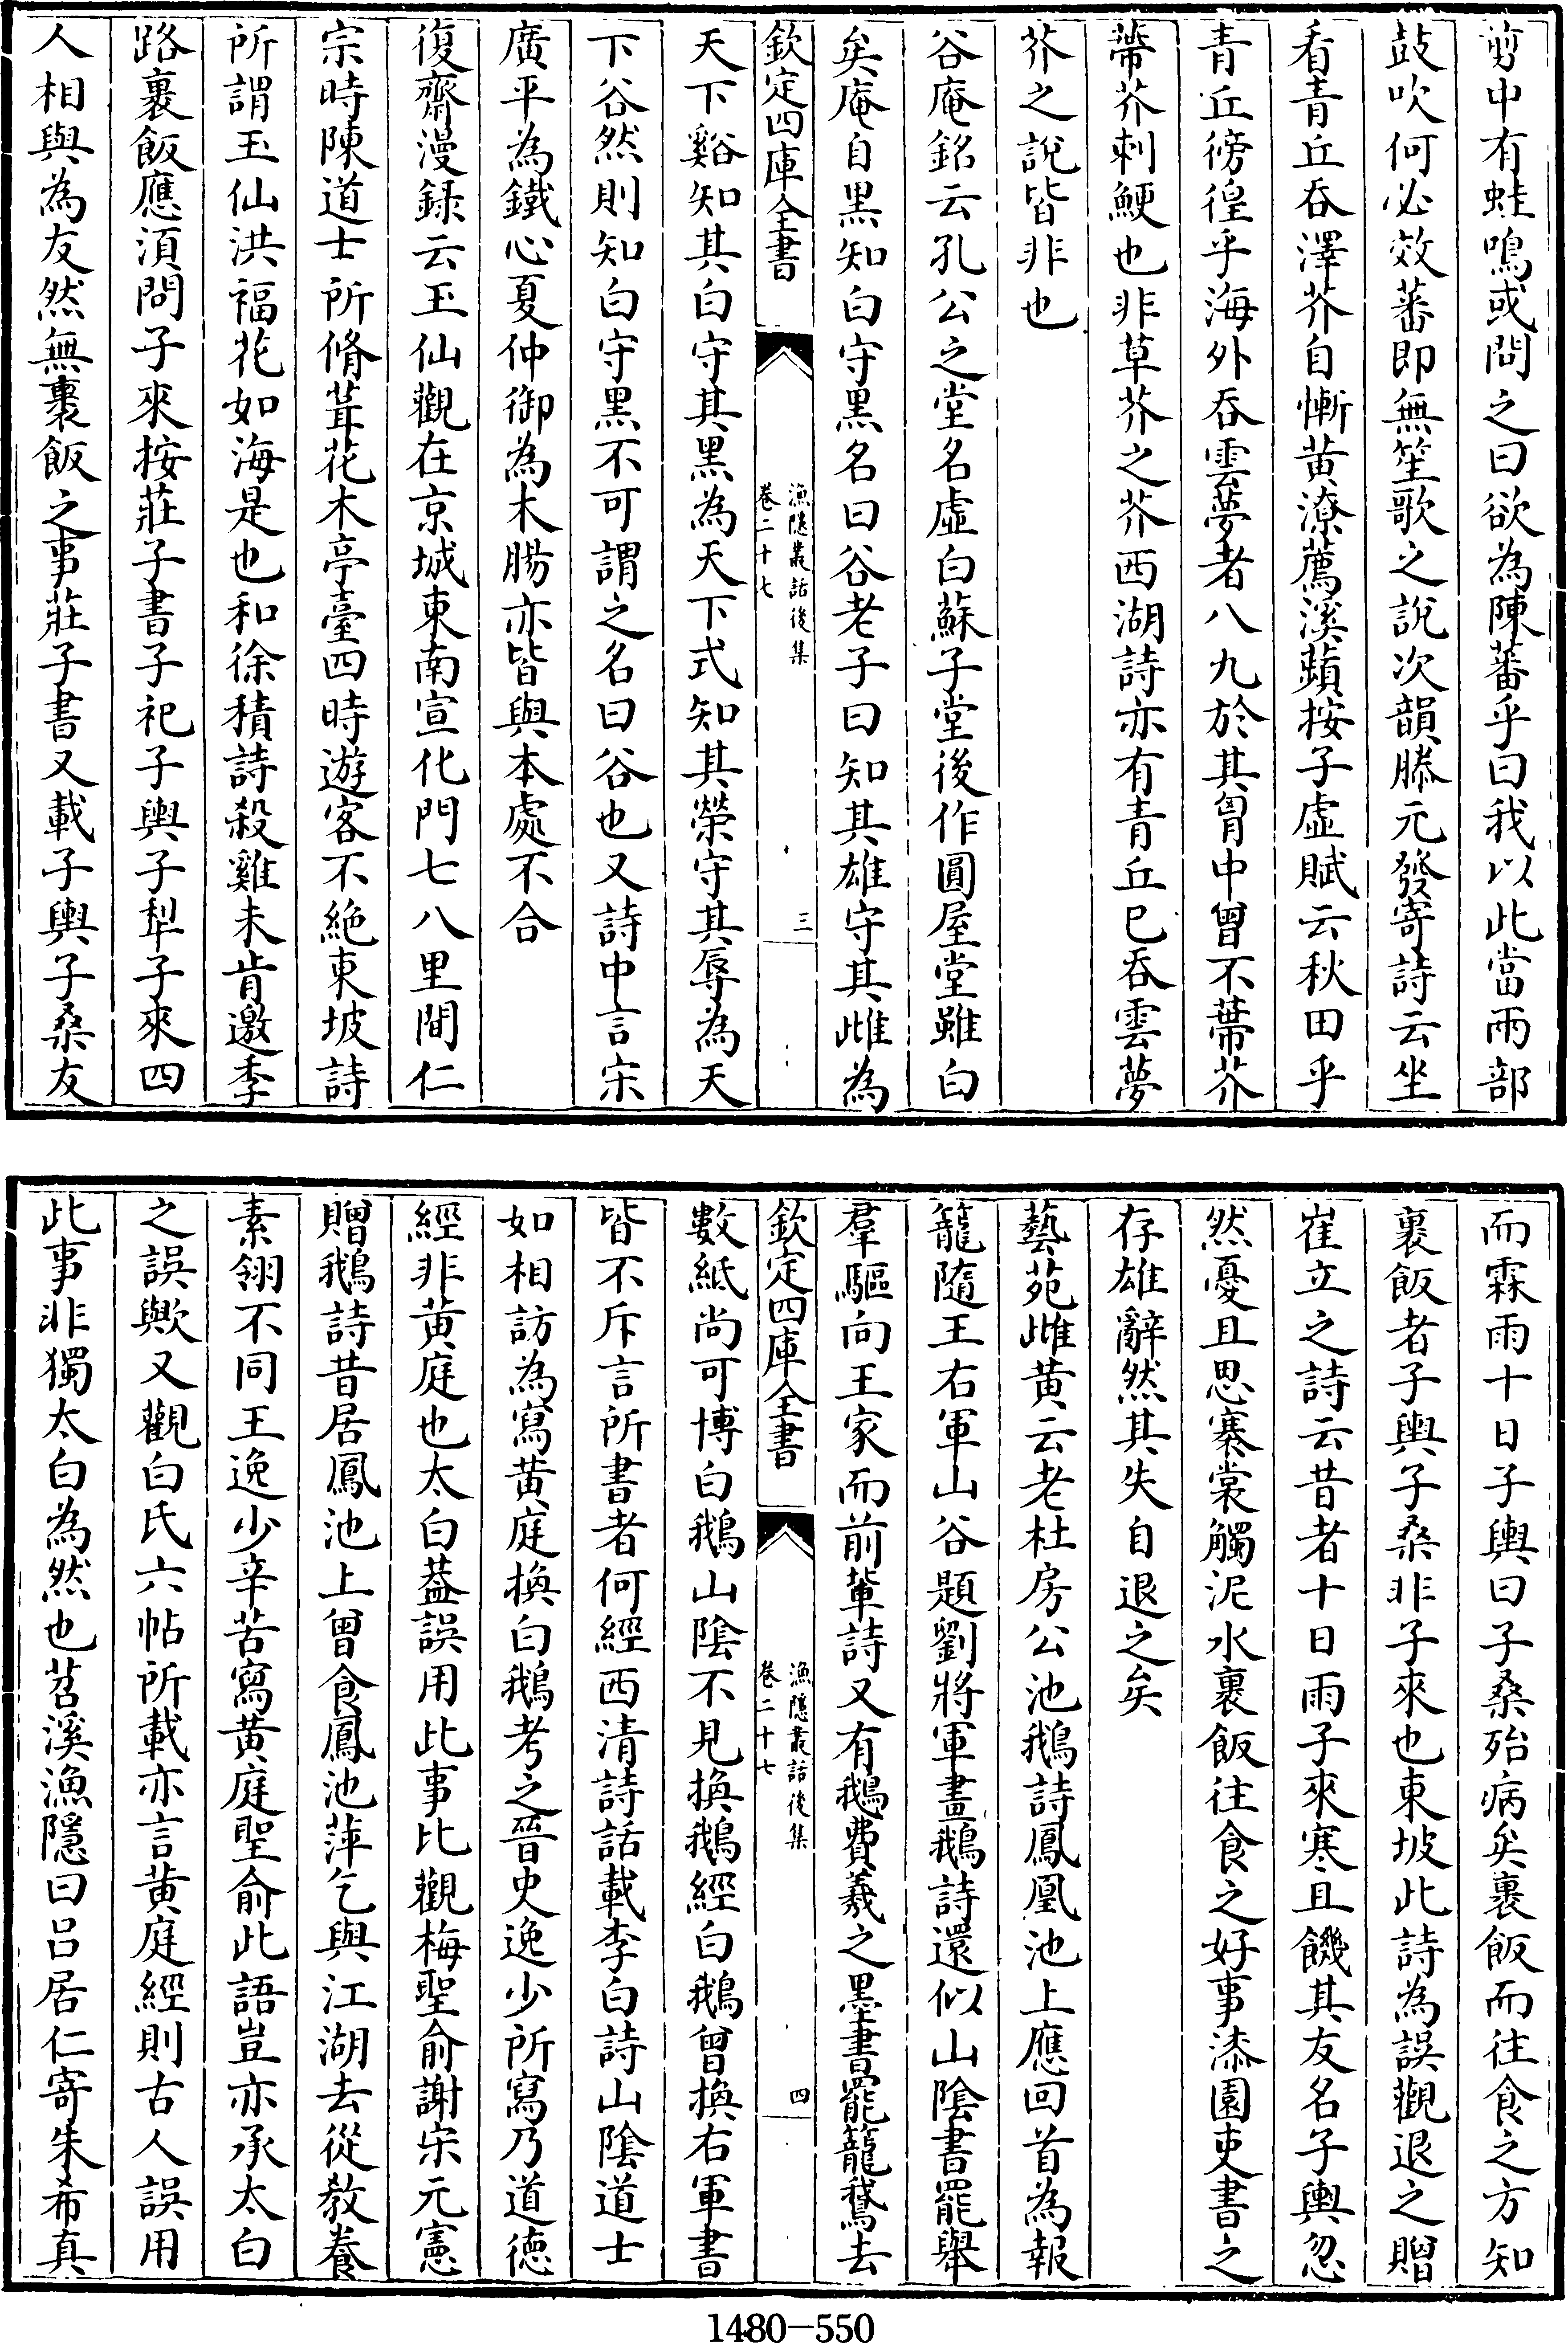 剪中有蛙鳴或問之曰欲為陳蕃乎曰我以此當兩部
鼓吹何必效蕃即無笙歌之說次韻滕元發寄詩云坐
看青丘吞澤芥自慚黄潦薦溪蘋按子虛賦云秋田乎
青丘徬徨乎海外吞雲夢者八九於其胷中曾不蔕芥
蔕芥刺鯁也非草芥之芥西湖詩亦有青丘已吞雲夢
芥之說皆非也
谷庵銘云孔公之堂名虛白蘇子堂後作圓屋堂雖白
矣庵自黑知白守黑名曰谷老子曰知其雄守其雌為
欽定四庫全書
漁隱叢話後集
卷二十七
三
天下谿知其白守其黑為天下式知其榮守其辱為天
下谷然則知白守黑不可謂之名曰谷也又詩中言宋
廣平為鐵心夏仲御為木腸亦皆與本處不合
復齋漫録云玉仙觀在京城東南宣化門七八里間仁
宗時陳道士所脩葺花木亭臺四時遊客不絶東坡詩
所謂玉仙洪福花如海是也和徐積詩殺雞未肯邀季
路裹飯應須問子來按莊子書子祀子輿子犁子來四
人相與為友然無裹飯之事莊子書又載子輿子桑友
而霖雨十日子輿曰子桑殆病矣裹飯而往食之方知
裹飯者子輿子桑非子來也東坡此詩為誤觀退之贈
崔立之詩云昔者十日雨子來寒且饑其友名子輿忽
然憂且思褰裳觸泥水裹飯往食之好事漆園吏書之
存雄辭然其失自退之矣
藝苑雌黄云老杜房公池鵝詩鳳凰池上應回首為報
籠隨王右軍山谷題劉將軍畫鵝詩還似山陰書罷舉
羣驅向王家而前輩詩又有鵝費羲之墨書罷籠鵞去
欽定四庫全書
漁隱叢話後集
卷二十七
四
數紙尚可博白鵝山陰不見換鵝經白鵝曾換右軍書
皆不斥言所書者何經西清詩話載李白詩山陰道士
如相訪為寫黄庭換白鵝考之晉史逸少所寫乃道德
經非黄庭也太白葢誤用此事比觀梅聖俞謝宋元憲
贈鵝詩昔居鳳池上曾食鳳池萍乞與江湖去從教養
素翎不同王逸少辛苦寫黄庭聖俞此語豈亦承太白
之誤歟又觀白氏六帖所載亦言黄庭經則古人誤用
此事非獨太白為然也苕溪漁隱曰吕居仁寄朱希真
1480-550